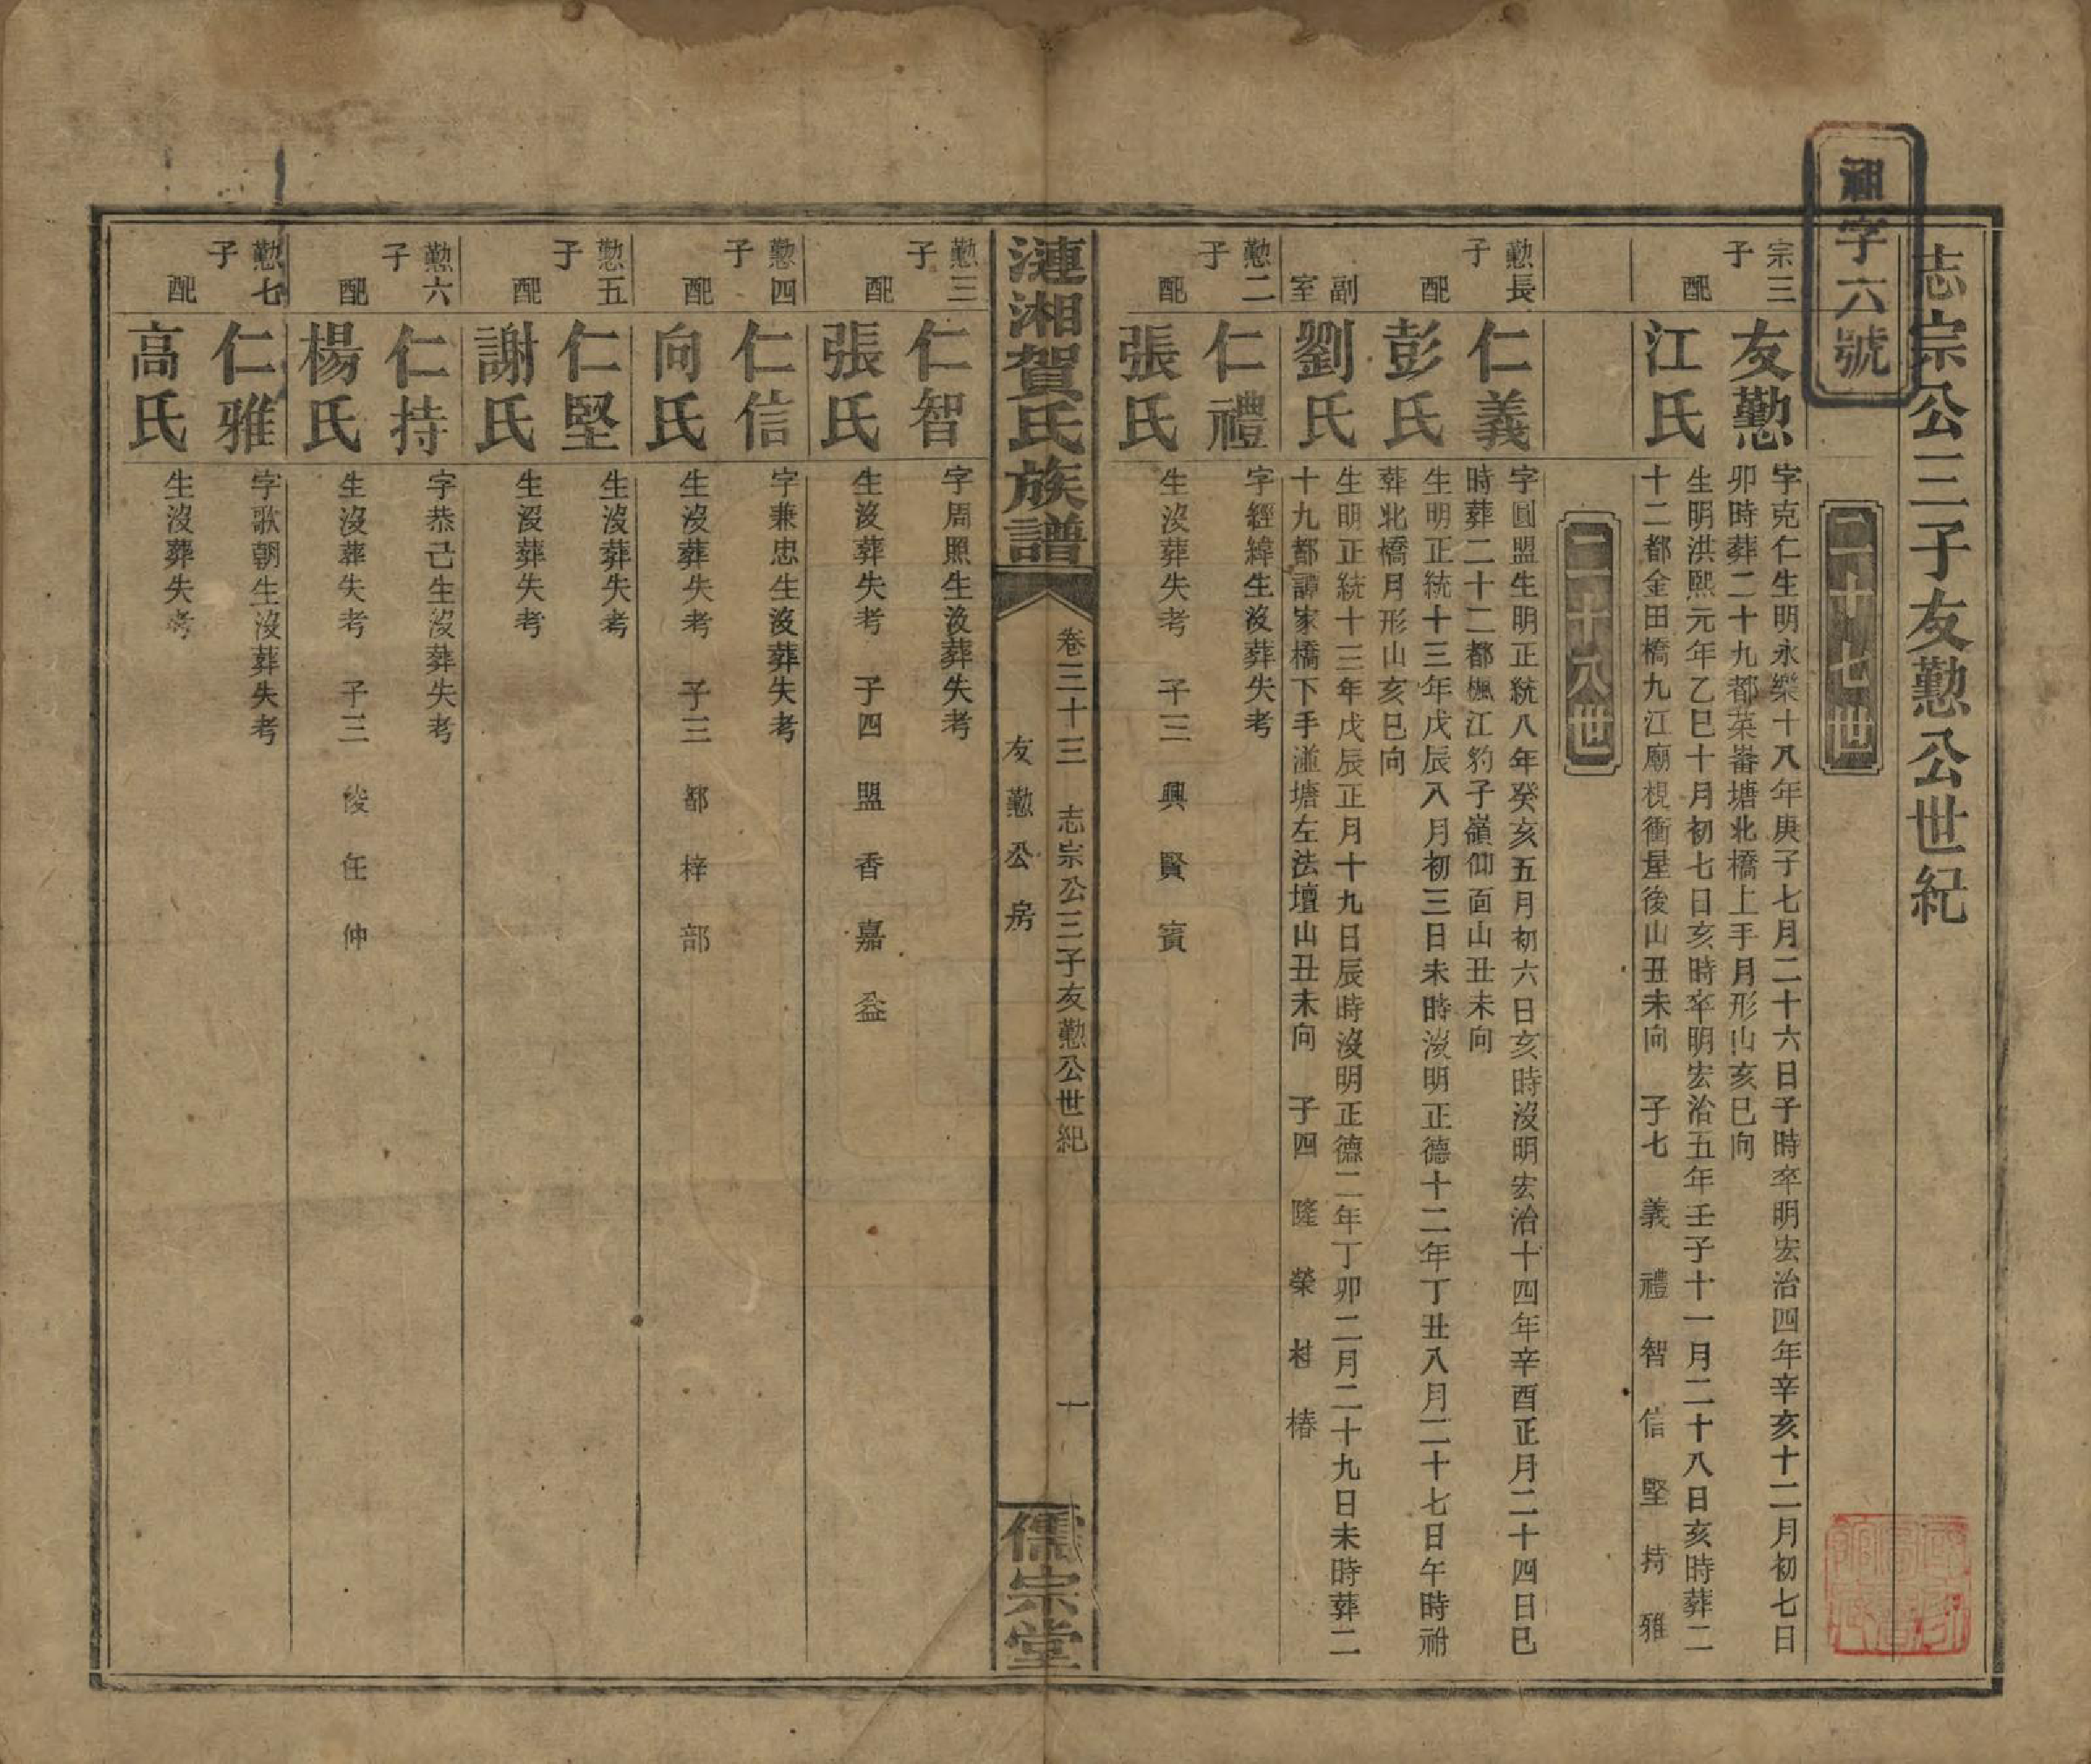 志宗公三子友懃公世紀
祖字六號
二十七世
宗三子
友懃
字克仁生明永樂十八年庚子七月二十六日子時卒明宏治四年辛亥十二月初七日
卯時葬二十九都菜畬塘北橋上手月形山亥巳向
配
江氏
生明洪熙元年乙巳十月初七日亥時卒明宏治五年壬子十一月二十八日亥時葬二
十二都金田橋九江廟梘衝屋後山丑未向 子七 義 禮 智 信 堅 持 雅
二十八世
懃長子
仁義
字圓盟生明正統八年癸亥五月初六日亥時沒明宏治十四年辛酉正月二十四日巳
時葬二十二都楓江豹子嶺仰面山丑未向
配
彭氏
生明正統十三年戊辰八月初三日未時沒明正德十二年丁丑八月二十七日午時祔
葬北橋月形山亥巳向
副室
劉氏
生明正統十三年戊辰正月十九日辰時沒明正德二年丁卯二月二十九日未時葬二
十九都譚家橋下手湴塘左法壇山丑未向 子四 隆 榮 村 椿
懃二子
仁禮
字經緯生沒葬失考
配
張氏
生沒葬失考 子三 興 賢 賓
漣湘賀氏族譜
卷三十三 志宗公三子友懃公世紀
友懃公房
一
儒宗堂
懃三子
仁智
字周照生沒葬失考
配
張氏
生沒葬失考 子四 盟 香 嘉 益
懃四子
仁信
字兼忠生沒葬失考
配
向氏
生沒葬失考 子三 都 梓 部
懃五子
仁堅
生沒葬失考
配
謝氏
生沒葬失考
懃六子
仁持
字恭己生沒葬失考
配
楊氏
生沒葬失考 子三 俊 任 仲
懃七子
仁雅
字歌朝生沒葬失考
配
高氏
生沒葬失考